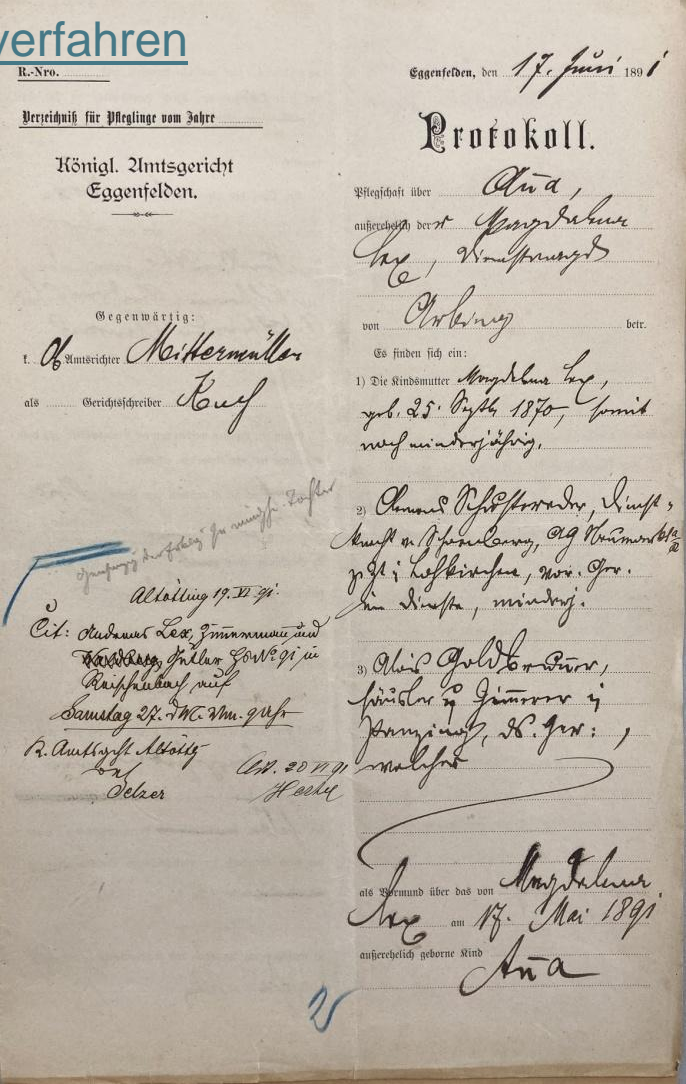 verfahren
R.-Nro.
Verzeichniß für Pfleglinge vom Jahre
Königl. Amtsgericht
Eggenfelden.
Gegenwärtig:
k. Ob Amtsrichter Mittermüller
als Gerichtsschreiber
Tochter
Altötting 19. VI. 91.
Cit: Andreas Lex, Zimmermann und
Gütler Hs No 91 in
Reischenbach auf
Samstag 27. dM. Vm. 9 Uhr
K. Amtsgcht Altöttg
Selzer
20 VI 91
2
Eggenfelden, den 17. Juni 1891
Protokoll.
Pflegschaft über Ana,
außerehelich der Magdalena
Lex, Dienstmagd
von Arbing betr.
Es finden sich ein:
1) Die Kindsmutter Magdalena Lex,
geb. 25. Septb. 1870, somit
noch minderjährig.
2) Clemens Schustereder, Dienst-
knecht v. Schoenberg, AG Neumarkt
z. Zt. i. Lohkirchen, vor. Ger.
im Dienste, minderj.
3) Alois Goldbrunner,
Häusler u Zimmerer i
Panzing, ds. Ger.,
welcher
als Vormund über das von Magdalena
Lex am 17. Mai 1891
außerehelich geborne Kind
Ana